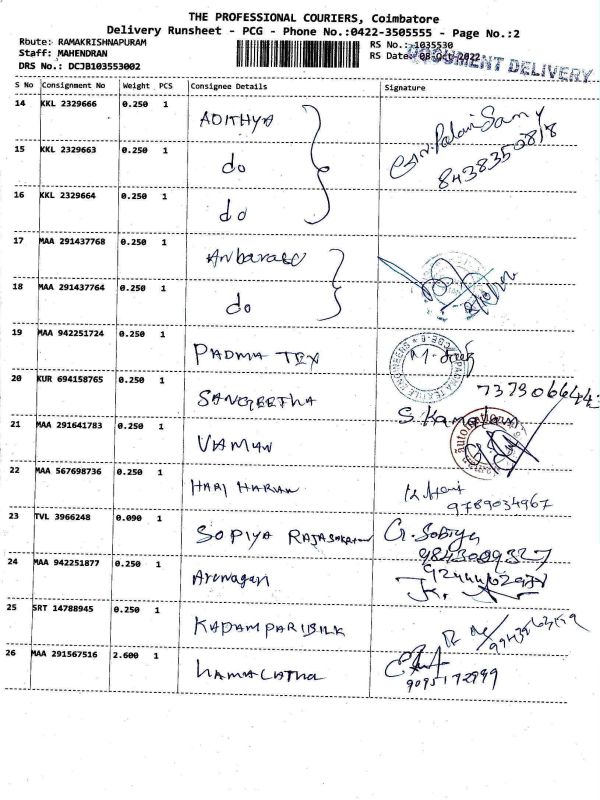 THE PROFESSIONAL COURIERS, Coimbatore
Delivery Runsheet - PCG - Phone No.:0422-3505555 - Page No.:2
Route: RAMAKRISHNAPURAM
RS No.:-1035530
Staff: MAHENDRAN
RS Date: 08-Oct-2022
DOCUMENT DELIVERY
DRS No.: DCJB103553002
S No Consignment No Weight PCS Consignee Details Signature
14 KKL 2329666 0.250 1 ADITHYA
8438350818
15 KKL 2329663 0.250 1 do
16 KKL 2329664 0.250 1 do
17 MAA 291437768 0.250 1 Anbarasu
18 MAA 291437764 0.250 1 do
19 MAA 942251724 0.250 1 PADMA TEX
20 KUR 694158765 0.250 1 SANGEETHA
7373066443
21 MAA 291641783 0.250 1 VAMAN
22 MAA 567698736 0.250 1 HARI HARAN
9789034967
23 TVL 3966248 0.090 1 SOPIYA G. Sobiya
9843009327
24 MAA 942251877 0.250 1 Arunagari
25 SRT 14788945 0.250 1
26 MAA 291567516 2.600 1 HAMALATHA
9095172999